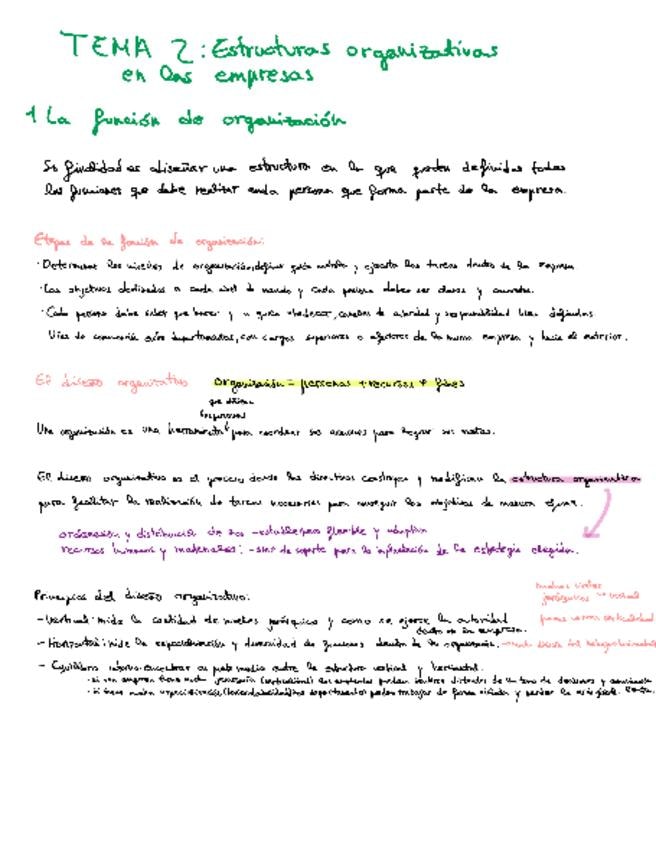 TEMA 2: Estructuras organizativas
en las empresas
1 La función de organización
Su finalidad es diseñar una estructura en la que queden definidas todas
las funciones que debe realizar cada persona que forma parte de la empresa.
Etapas de la función de organización:
· Determinar los niveles de organización, definir quién y ejecuta las tareas dentro de la empresa.
· Los objetivos destinados a cada nivel de mando y cada persona deben ser claros y concretos.
· Cada persona debe saber que hacer y a quien obedecer, canales de autoridad y responsabilidad bien definidos.
Vías de comunicación entre departamentos, con cargos superiores o inferiores de la misma empresa y hacia el exterior.
El diseño organizativo organización = personas + recursos + fines
que utilizan
Una organización es una herramienta para coordinar sus acciones para lograr sus metas.
El diseño organizativo es el proceso donde los directivos construyen y modifican la estructura organizativa
para facilitar la realización de tareas necesarias para conseguir los objetivos de manera
ordenación y distribución de sus - estable pero flexible y adaptiva
recursos humanos y materiales: - sirve de soporte para la implantación de la estrategia elegida.
Principios del diseño organizativo:
- Vertical: mide la cantidad de niveles jerárquicos y como se ejerce la autoridad
dentro de la empresa.
- Horizontal: mide la especialización y diversidad de funciones dentro de la organización.
- Equilibrio interno: encontrar un punto medio entre la estructura vertical y horizontal.
· si una empresa tiene mucha jerarquía (verticalidad) los empleados pueden sentirse distantes de la toma de decisiones y
· si tiene mucha especialización pueden trabajar de forma aislada y perder la